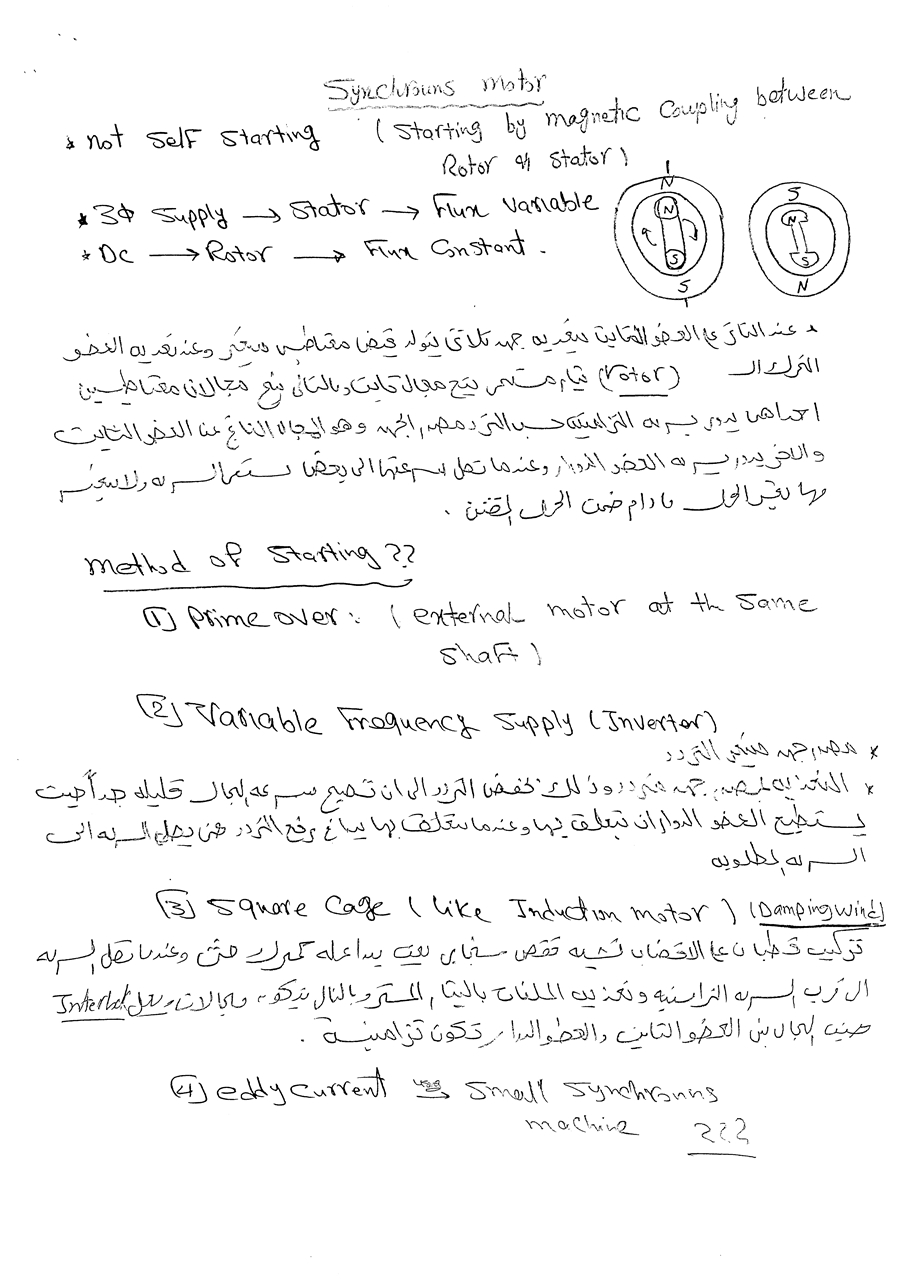 Synchrouns motor
* not Self Starting (Starting by magnetic Coupling between
Rotor & Stator)
* 3Φ Supply → Stator → Flux Variable
* Dc → Rotor → Flux Constant .
N
N
S
S
S
N
S
N
* عند التأثير على العضو الثابت بتغذية جهد ثلاثي يتولد فيض مغناطيسي متغير وعند تغذية العضو
(rotor) بتيار مستمر ينتج مجال ثابت وبالتالي ينتج مجالان مغناطيسين
احداهما يدور بسرعة التزامنية حسب التردد مصدر الجهد وهو المجال الناتج عن العضو الثابت
والاخر يدور بسرعة العضو الدوار وعندما تصل سرعتها الى بعضها بسرعة ولا تتغير
مهما تغير الحمل مادام ضمن الحمل المقنن .
Method of Starting ??
(1) Prime over : (external motor at th Same
Shaft)
(2) Variable Frequency Supply (Invertor)
* مصدر جهد متغير التردد
* التغذية بمصدر جهد متردد وذلك نخفض التردد الى ان تصبح سرعة المجال قليله جداً حيث
يستطيع العضو الدوار ان تتعلق بها وعندما يتعلق بها يبدأ رفع التردد حتى يصل السرعة الى
السرعة المطلوبه
(3) Square Cage (like Induction motor) (Damping wind)
تركيب قطبان على الاقطاب تشبه قفص سنجابي بحيث يبدا عمله كمحرك حثي وعندما تصل السرعة
الى قرب السرعة التزامنيه و تغذيه الملفات بالتيار المستمر وبالتالي يتكون مجالات Interlock
المجال بين العضو الثابت والعضو الدوار تكون تزامنية .
(4) eddy current use Small Synchronns
machine ???